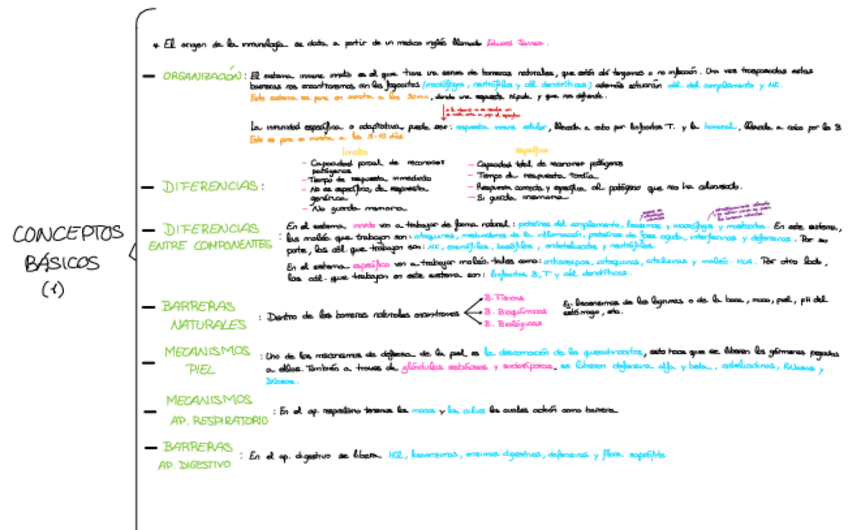 * El origen de la inmunología se data a partir de un medico inglés llamado Edward Jenner.
— ORGANIZACIÓN: El sistema inmune innato es el que tiene una series de barreras naturales, que están ahí tengamos o no infección. Una vez traspasadas estas
barreras nos encontraremos con los fagocitos (macrófagos, neutrófilos y cél dendríticas) además actuarán cél. del complemento y NK.
Este sistema se pone en marcha a los 30 min, dando una respuesta rápida y que nos defiende.
La inmunidad específica o adaptativa, puede ser: respuesta inmune celular, llevada a cabo por linfocitos T. y la humoral, llevada a cabo por los B
Este se pone en marcha a los 5-10 días
— DIFERENCIAS:
Innata
- Capacidad parcial de reconocer
patógenos
- Tiempo de respuesta inmediato
- No es específica, da respuesta
genérica
- No guarda memoria
específica
- Capacidad total de reconocer patógenos
- Tiempo de respuesta tardía
- Respuesta correcta y específica al patógeno que nos ha alarmado.
- Si guarda memoria
CONCEPTOS
BÁSICOS
(1)
— DIFERENCIAS
ENTRE COMPONENTES:
En el sistema innato van a trabajar de forma natural: proteínas del complemento, lisozimas y macrófagos y mastocitos. En este sistema,
las moléc que trabajan son: citoquinas, mediadores de la inflamación, proteínas de fase aguda, interferones y defensinas. Por su
parte, las cél. que trabajan son: NK, eosinófilos, basófilos, endoteliales y neutrófilos.
En el sistema específico van a trabajar moléc. tales como: anticuerpos, citoquinas, y moléc. HLA. Por otro lado,
las cél. que trabajan en este sistema son: linfocitos B, T y cél dendríticas.
— BARRERAS
NATURALES : Dentro de las barreras naturales encontramos
B. Físicas
B. Bioquímicas
B. Biológicas
Ej: lisozimas de las lágrimas o de la boca, moco, piel, pH del
estómago, etc.
— MECANISMOS
PIEL
: Uno de los mecanismos de defensa de la piel es la descamación de los queratinocitos, esto hace que se liberen los gérmenes pegados
a ellos. También a traves de glándulas sebáceas y sudoríparas, se liberan defensina alfa y beta, catelicidinas, RNasas y
DNasas.
— MECANISMOS
AP. RESPIRATORIO : En el ap. respiratorio tenemos los mocos y los cilios los cuales actúan como barrera
— BARRERAS
AP. DIGESTIVO : En el ap. digestivo se libera HCl, lisozimas, enzimas digestivas, defensinas y flora saprófita